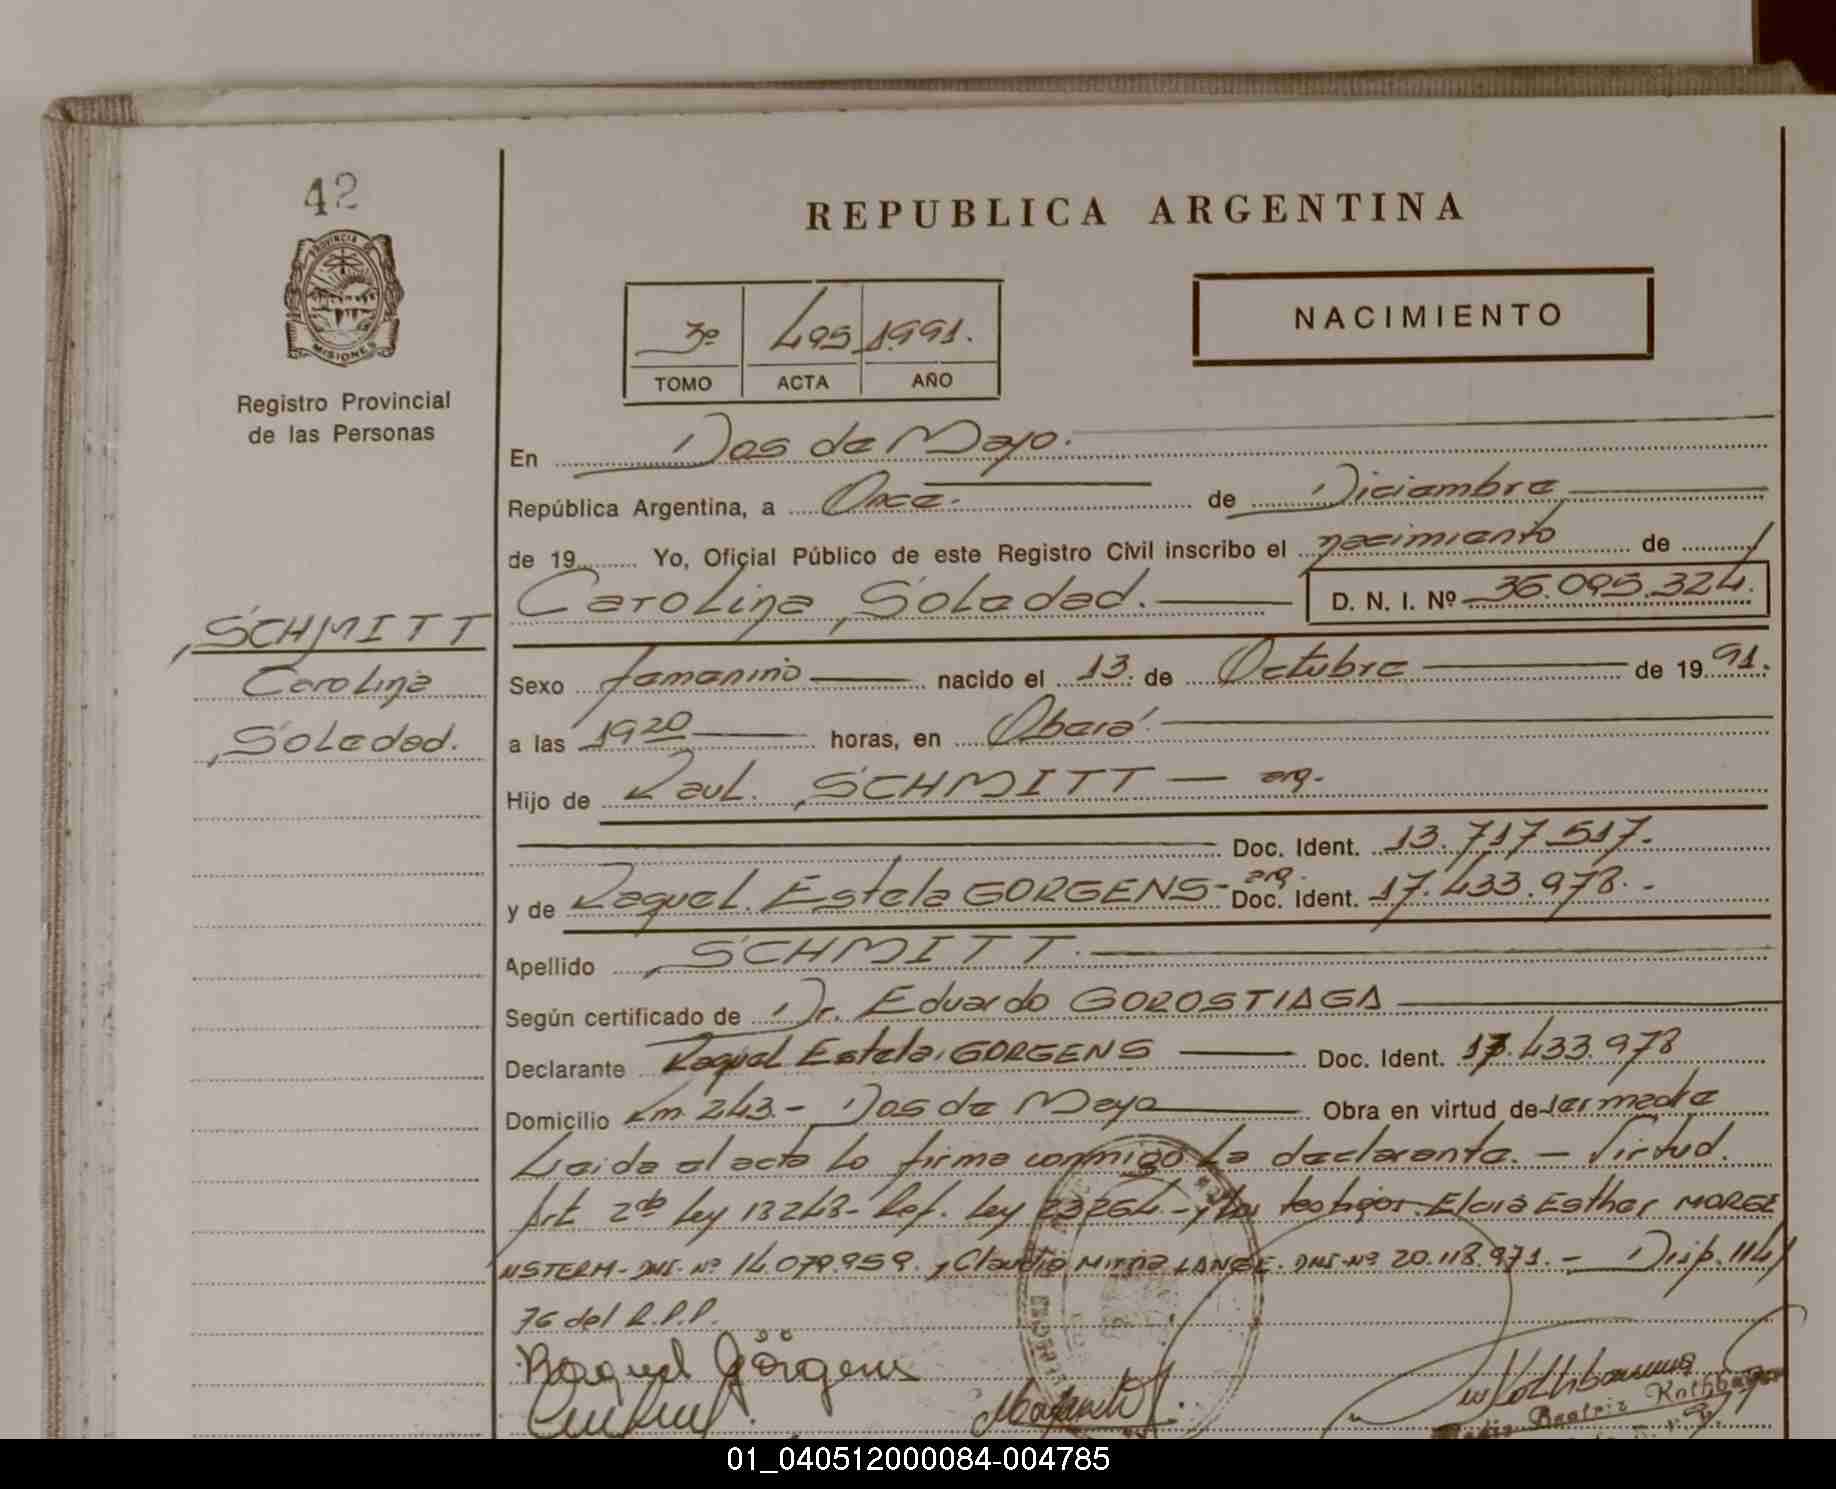 42
PROVINCIA DE
MISIONES
Registro Provincial
de las Personas
SCHMITT
Carolina
Soledad.
REPUBLICA ARGENTINA
NACIMIENTO
3º 495 1991.
TOMO ACTA AÑO
En Dos de Mayo.
República Argentina, a Once. de Diciembre
de 19 Yo, Oficial Público de este Registro Civil inscribo el nacimiento de
Carolina Soledad. D. N. I. Nº 36.095.324.
Sexo femenino nacido el 13. de Octubre de 19 91.
a las 19 20 horas, en Oberá.
Hijo de Raul. SCHMITT — arg.
Doc. Ident. 13.717.517.
y de Raquel. Estela GORGENS- arg. Doc. Ident. 17.433.978.-
Apellido SCHMITT.
Según certificado de Dr. Eduardo GOROSTIAGA
Declarante Raquel Estela. GORGENS Doc. Ident. 17.433.978
Domicilio Km. 243.- Dos de Mayo Obra en virtud de ser madre
Leida el acta lo firma conmigo la declarante. — Virtud.
Art. 2do Ley 18248- Ref. Ley 23264- y los testigos. Elcira Esther MORGE
NSTERM- DNI. Nº 14.079.959. y Claudia Mirna LANGE. DNI-Nº 20.118.971.- Disp. 114/
76 del R.P.P.
Raquel Görgens
01_040512000084-004785